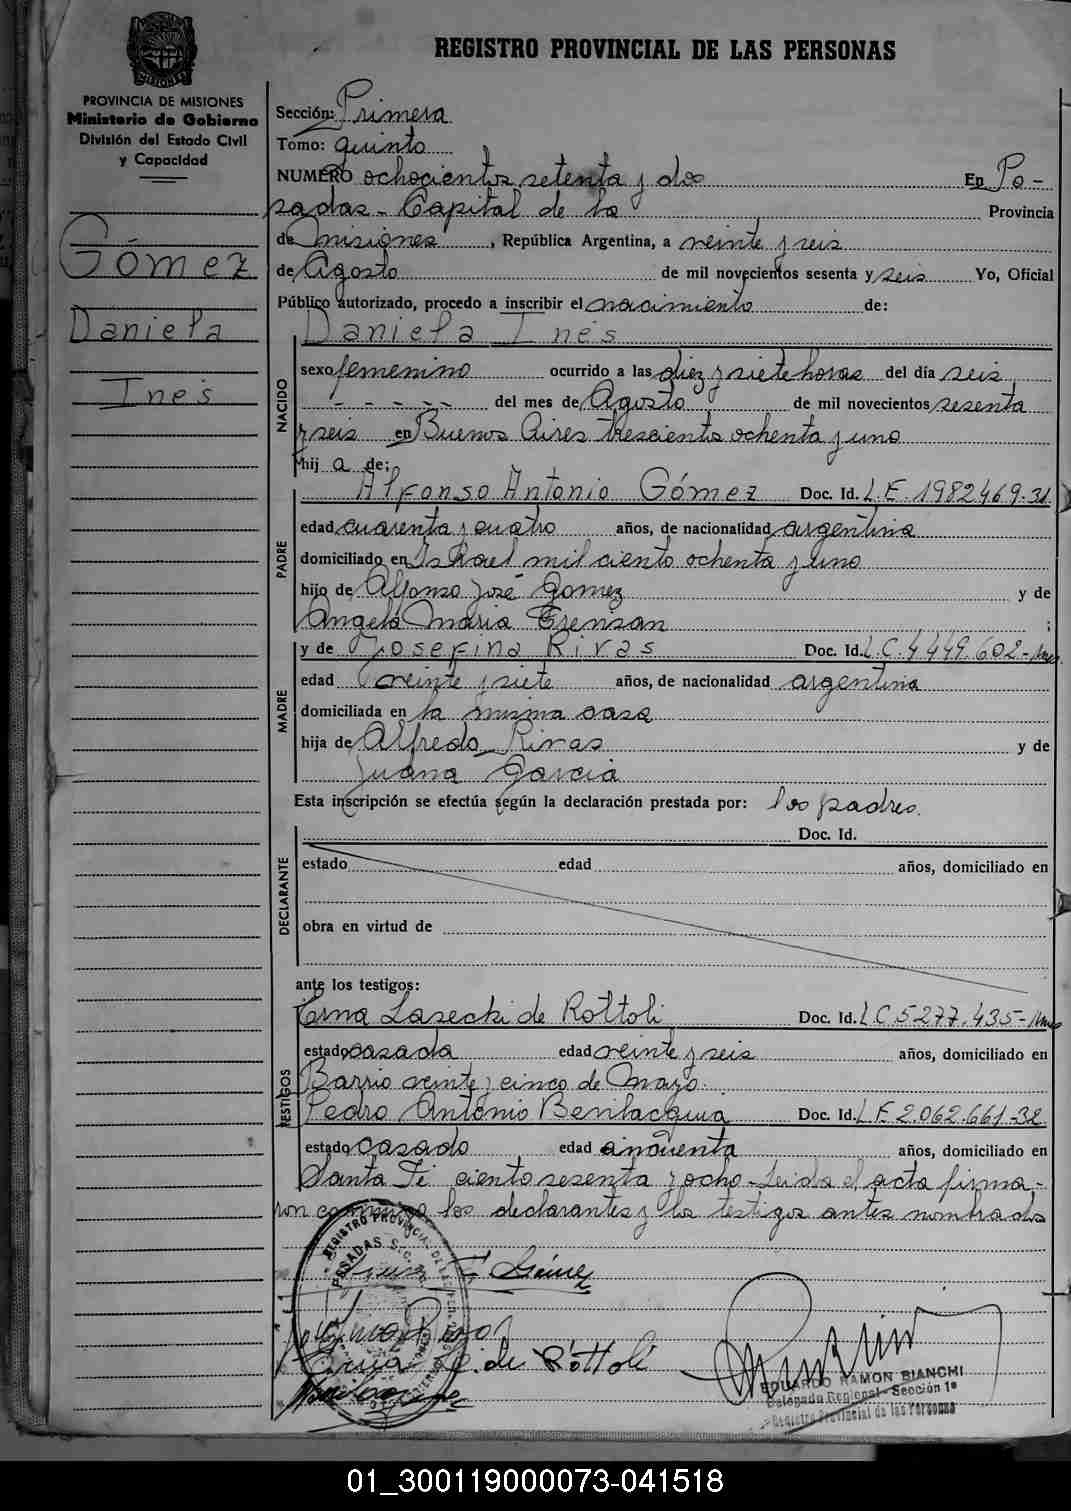 MISIONES
PROVINCIA DE MISIONES
Ministerio de Gobierno
División del Estado Civil
y Capacidad
Gómez
Daniela
Inés
REGISTRO PROVINCIAL DE LAS PERSONAS
Sección: Primera
Tomo: quinto
NUMERO ochocientos setenta y dos En Po-
sadas - Capital de la Provincia
de Misiones, República Argentina, a veinte y seis
de Agosto de mil novecientos sesenta y seis Yo, Oficial
Público autorizado, procedo a inscribir el nacimiento de:
Daniela Inés
NACIDO
sexo femenino ocurrido a las diez y siete horas del día seis
- - - - - del mes de Agosto de mil novecientos sesenta
y seis en Buenos Aires trescientos ochenta y uno
hij a de:
PADRE
Alfonso Antonio Gómez Doc. Id. L.E. 1982469-31
edad cuarenta y cuatro años, de nacionalidad argentina
domiciliado en Israel mil ciento ochenta y uno
hijo de Alfonso José Gomez y de
Angela Maria ;
MADRE
y de Josefina Rivas Doc. Id. L.C. 4.449.602-
edad veinte y siete años, de nacionalidad argentina
domiciliada en la misma casa
hija de Alfredo Rivas y de
Juana Garcia
Esta inscripción se efectúa según la declaración prestada por: los padres.
DECLARANTE
Doc. Id.
estado edad años, domiciliado en
obra en virtud de
ante los testigos:
TESTIGOS
Erna Lasecki de Rottoli Doc. Id. L.C 5.277.435-
estado casada edad veinte y seis años, domiciliado en
Barrio veinte y cinco de Mayo.
Pedro Antonio Benilacqua Doc. Id. L.E. 2.062.661-32
estado casado edad cincuenta años, domiciliado en
Santa Fé ciento sesenta y ocho - Leida el acta firma-
ron conmigo los declarantes y los testigos antes nombrados
REGISTRO PROVINCIAL DE LAS PERSONAS
POSADAS
Gómez
Rivas
Erna L. de Rottoli
EDUARDO RAMON BIANCHI
Delegado Regional - Sección 1ª
Registro Provincial de las Personas
01_300119000073-041518